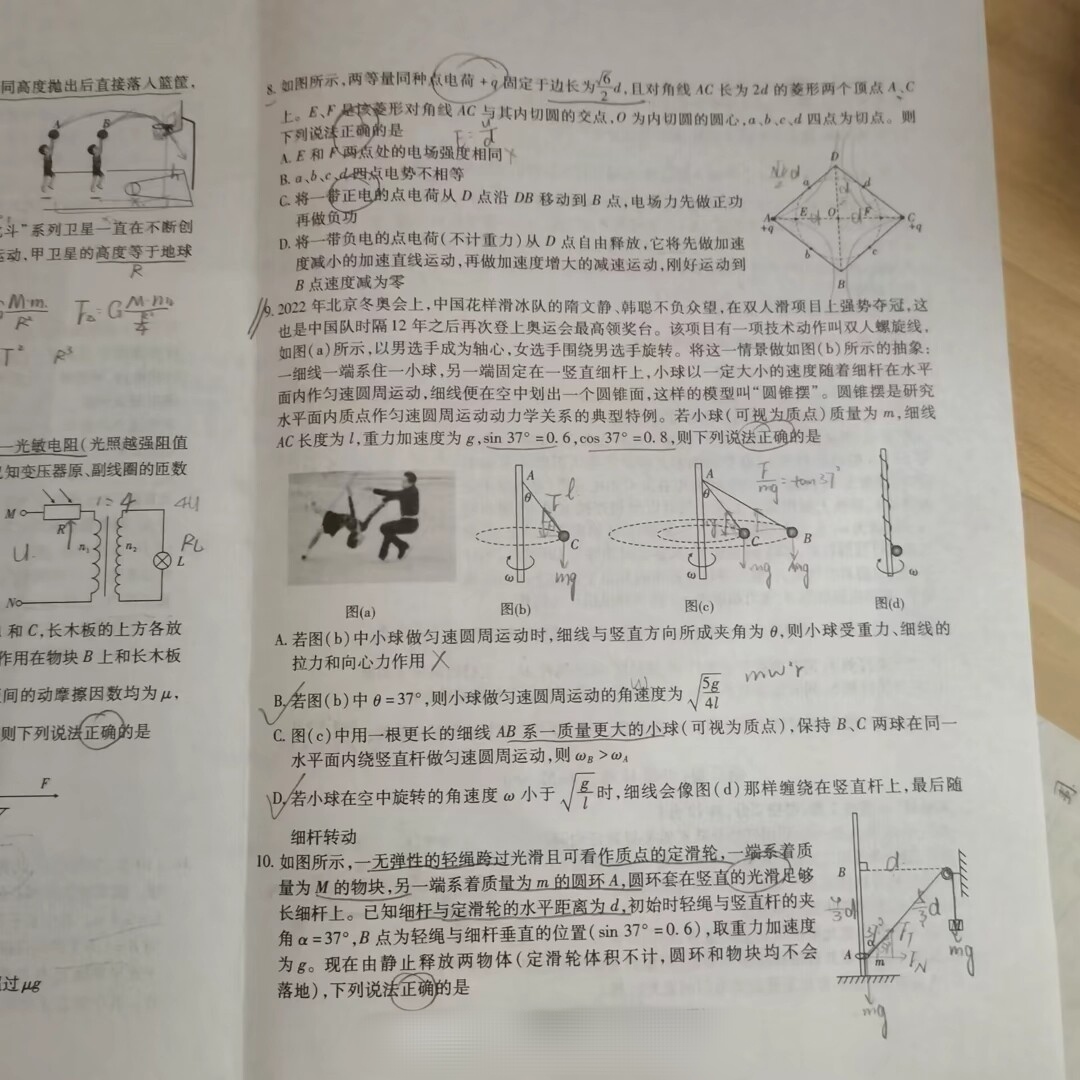 同高度抛出后直接落入篮筐,
A
B
h
斗”系列卫星一直在不断创
运动,甲卫星的高度等于地球
R
M·m
R²
T²
R³
一光敏电阻(光照越强阻值
知变压器原、副线圈的匝数
M
R
1:4
4U
U
n₁
n₂
L
N
和C,长木板的上方各放
作用在物块B上和长木板
间的动摩擦因数均为μ,
则下列说法正确的是
F
过μg
8. 如图所示,两等量同种点电荷+q固定于边长为√6/2 d,且对角线AC长为2d的菱形两个顶点A、C
上。E、F是该菱形对角线AC与其内切圆的交点,O为内切圆的圆心,a、b、c、d四点为切点。则
下列说法正确的是
A. E和F两点处的电场强度相同
B. a、b、c、d四点电势不相等
C. 将一带正电的点电荷从D点沿DB移动到B点,电场力先做正功
再做负功
D. 将一带负电的点电荷(不计重力)从D点自由释放,它将先做加速
度减小的加速直线运动,再做加速度增大的减速运动,刚好运动到
B点速度减为零
D
a
d
A
+q
E
O
F
C
+q
b
c
B
9. 2022年北京冬奥会上,中国花样滑冰队的隋文静、韩聪不负众望,在双人滑项目上强势夺冠,这
也是中国队时隔12年之后再次登上奥运会最高领奖台。该项目有一项技术动作叫双人螺旋线,
如图(a)所示,以男选手成为轴心,女选手围绕男选手旋转。将这一情景做如图(b)所示的抽象:
一细线一端系住一小球,另一端固定在一竖直细杆上,小球以一定大小的速度随着细杆在水平
面内作匀速圆周运动,细线便在空中划出一个圆锥面,这样的模型叫“圆锥摆”。圆锥摆是研究
水平面内质点作匀速圆周运动动力学关系的典型特例。若小球(可视为质点)质量为m,细线
AC长度为l,重力加速度为g,sin 37°=0.6,cos 37°=0.8,则下列说法正确的是
A
θ
l
C
mg
ω
A
θ
C
B
mg
mg
ω
F/mg=tan37°
ω
图(a)
图(b)
图(c)
图(d)
A. 若图(b)中小球做匀速圆周运动时,细线与竖直方向所成夹角为θ,则小球受重力、细线的
拉力和向心力作用 X
B. 若图(b)中θ=37°,则小球做匀速圆周运动的角速度为√(5g/4l)
mw²r
C. 图(c)中用一根更长的细线AB系一质量更大的小球(可视为质点),保持B、C两球在同一
水平面内绕竖直杆做匀速圆周运动,则ω_B>ω_A
D. 若小球在空中旋转的角速度ω小于√(g/l)时,细线会像图(d)那样缠绕在竖直杆上,最后随
细杆转动
10. 如图所示,一无弹性的轻绳跨过光滑且可看作质点的定滑轮,一端系着质
量为M的物块,另一端系着质量为m的圆环A,圆环套在竖直的光滑足够
长细杆上。已知细杆与定滑轮的水平距离为d,初始时轻绳与竖直杆的夹
角α=37°,B点为轻绳与细杆垂直的位置(sin 37°=0.6),取重力加速度
为g。现在由静止释放两物体(定滑轮体积不计,圆环和物块均不会
落地),下列说法正确的是
B
d
4/3d
5/3d
α
A
m
M
F_N
mg
mg